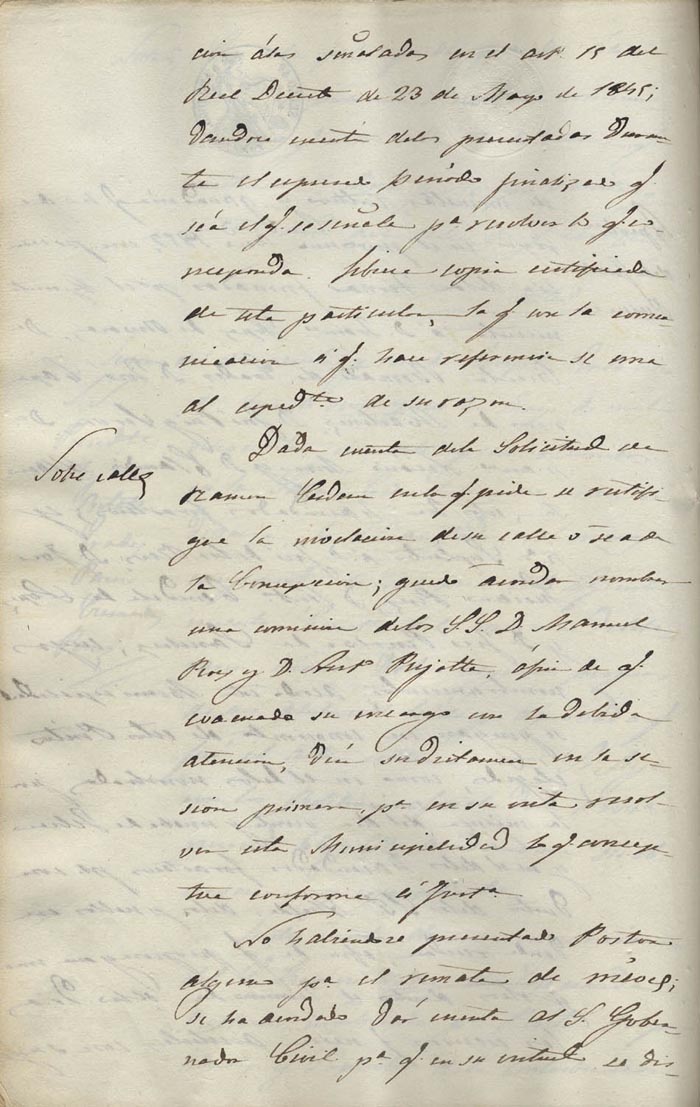 cion á las señaladas en el artº 15 del
Real Decreto de 23 de Mayo de 1845;
dandose cuenta de los presentados duran-
te el espresado periódo finalizado q.
séa el q. se señale pª resolver lo q. co-
rresponda. Librese copia certificada
de este particular, la q. con la comu-
nicacion á q. hace referencia se una
al espedte de su razon.
Sobre calles
Dada cuenta dela Solicitud de
Ramon en la q. pide se rectifi-
que la nivelacion de su calle ó sea de
la Concepcion; quedó acordado nombrar
una comision de los S.S. D. Manuel
Ros y D. Antº á fin de q.
evacuado su encargo con la debida
atencion, dén su dictamen en la se-
sion primera, pª en su vista resol-
ver esta Municipalidad lo q. concep-
tue conforme á Justª
No habiendose presentado Postor
alguno pª el remate de
se ha acordado dár cuenta al S. Gober-
nador Civil pª q. en su virtud se dis-